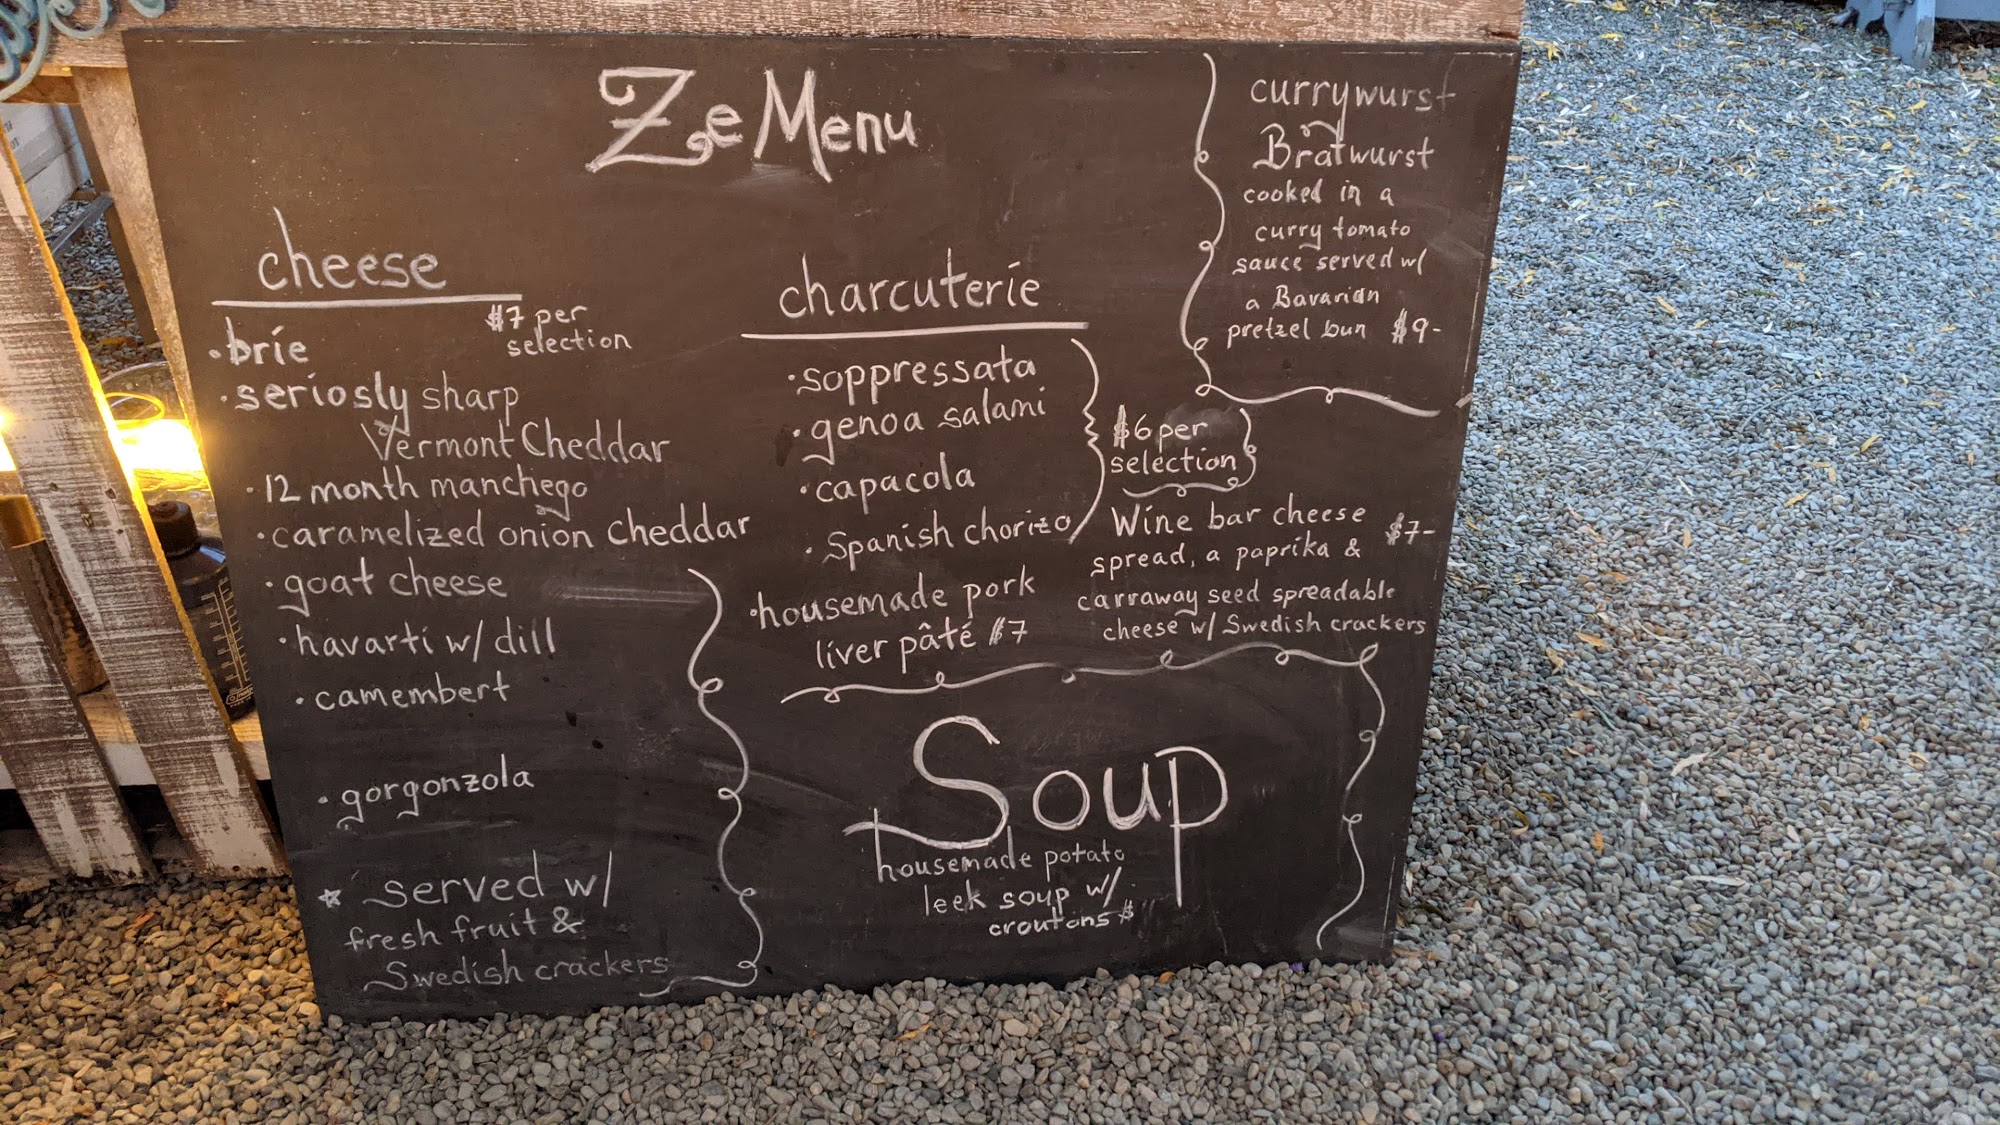 Ze Menu
cheese
$7 per
selection
• brie
• seriosly sharp
Vermont Cheddar
• 12 month manchego
• caramelized onion cheddar
• goat cheese
• havarti w/ dill
• camembert
• gorgonzola
☆ served w/
fresh fruit &
Swedish crackers
charcuterie
• soppressata
• genoa salami
• capacola
• Spanish chorizo
$6 per
selection
• housemade pork
liver pâté $7
currywurst
Bratwurst
cooked in a
curry tomato
sauce served w/
a Bavarian
pretzel bun $9-
Wine bar cheese $7-
spread, a paprika &
carraway seed spreadable
cheese w/ Swedish crackers
Soup
housemade potato
leek soup w/
croutons $